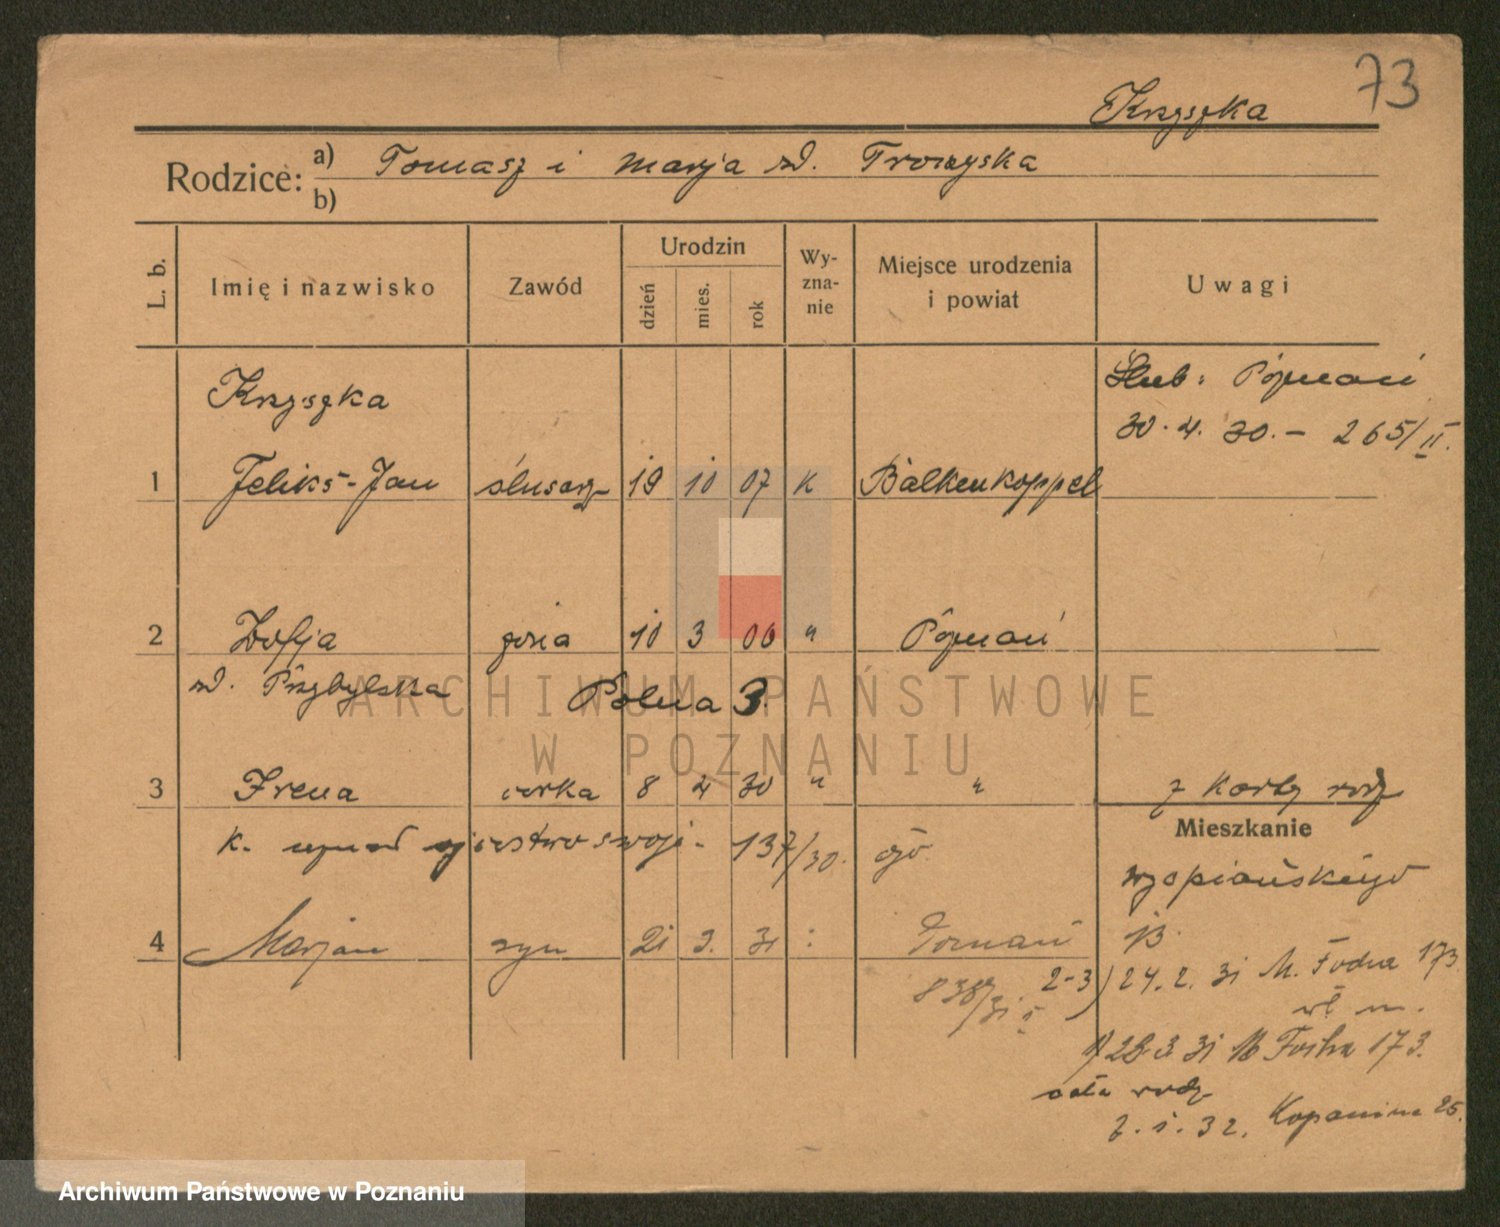 73
Krzyszka
Rodzice: a) Tomasz i Marja zd.
b)
L. b.
Imię i nazwisko
Zawód
Urodzin
dzień
mies.
rok
Wy-
zna-
nie
Miejsce urodzenia
i powiat
Uwagi
Krzyszka
Ślub: Poznań
30. 4. 30. – 265/II.
1 Feliks-Jan ślusarz 19 10 07 K Balkenkoppel
2 Zofja żona 10 3 06 " Poznań
zd. Przybylska Polna 3.
3 Irena córka 8 4 30 " " z karty rodz
Mieszkanie
K. uznał ojcostwo swoje 137/30.
4 Marjan syn 21 3. 31 : Poznań
838/31 II
2-3) 24. 2. 31 M. Focha 173
1) 28. 3. 31 M Focha 173.
cała rodz
7. 1. 32. Kopanina 25.
ARCHIWUM PAŃSTWOWE
W POZNANIU
Archiwum Państwowe w Poznaniu